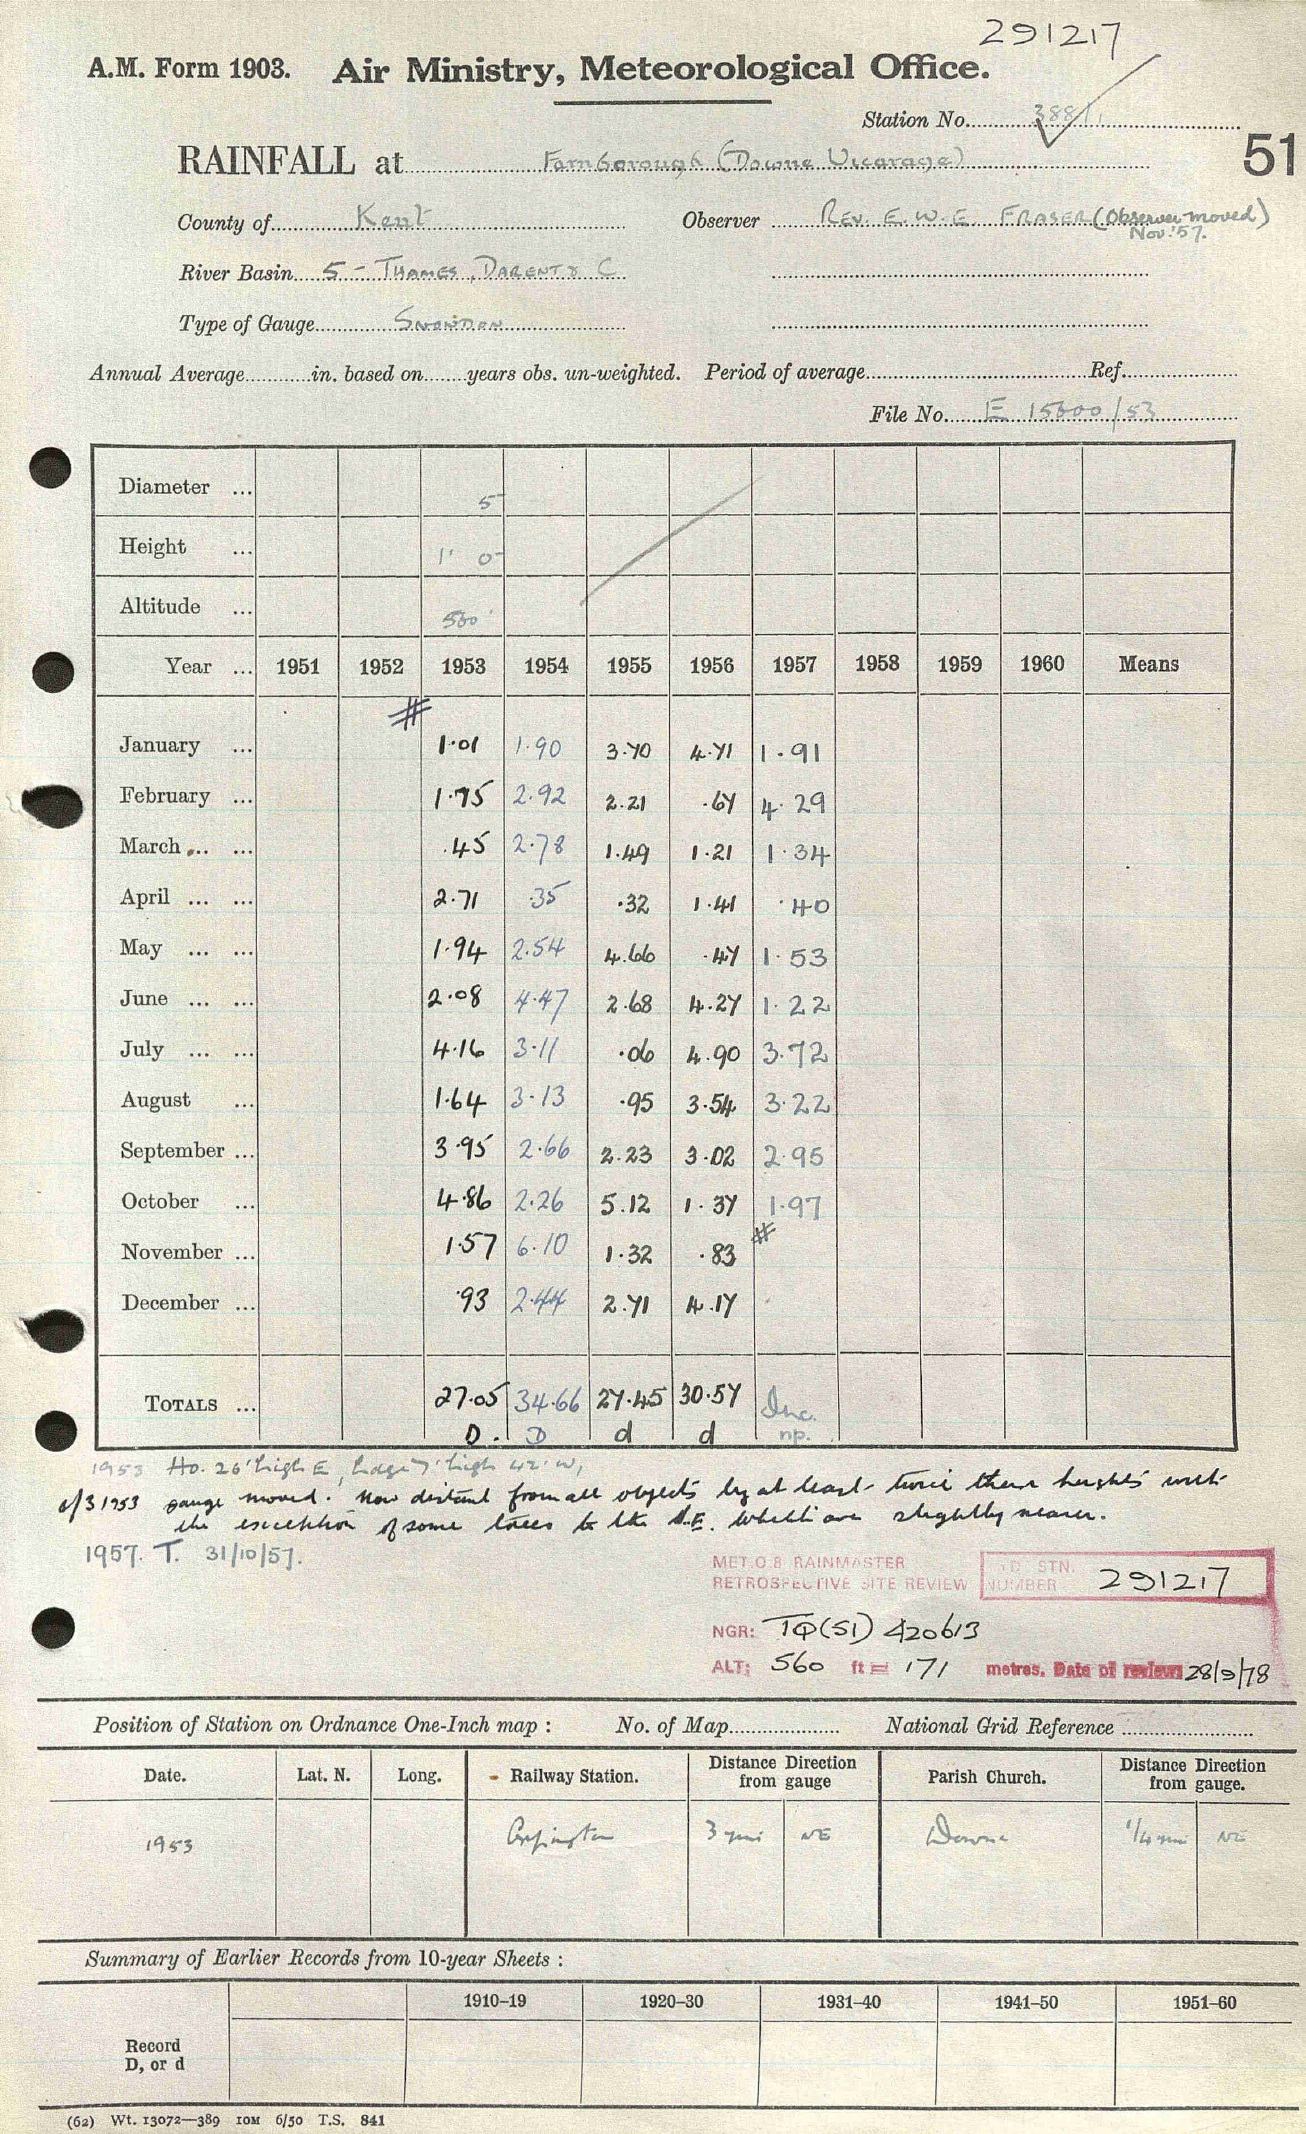 291217
A.M. Form 1903. Air Ministry, Meteorological Office.
Station No. 388/1
51
RAINFALL at Farnborough (Downe Vicarage)
County of Kent Observer REV. E.W.E. FRASER (Observer moved)
Nov. '57.
River Basin 5 - THAMES, DARENT & C
Type of Gauge SNOWDON
Annual Average in. based on years obs. un-weighted. Period of average Ref.
File No. E 15600/53
Diameter ... 5
Height ... 1' 0
Altitude ... 560'
Year ... 1951 1952 1953 1954 1955 1956 1957 1958 1959 1960 Means
#
January ... 1.01 1.90 3.70 4.71 1.91
February ... 1.75 2.92 2.21 .67 4.29
March ... ... .45 2.78 1.49 1.21 1.34
April ... ... 2.71 .35 .32 1.41 .40
May ... ... 1.94 2.54 4.66 .47 1.53
June ... ... 2.08 4.47 2.68 4.27 1.22
July ... ... 4.16 3.11 .06 4.90 3.72
August ... 1.64 3.13 .95 3.54 3.22
September ... 3.95 2.66 2.23 3.02 2.95
October ... 4.86 2.26 5.12 1.37 1.97
#
November ... 1.57 6.10 1.32 .83
December ... .93 2.44 2.71 4.17
TOTALS ... 27.05 34.66 27.45 30.57 Inc.
D. D d d np.
1953 Ho. 26' high E, hedge 7' high 42' W,
6/3 1953 gauge moved. Now distant from all objects by at least twice their heights with
the exception of some trees to the N.E. which are slightly nearer.
1957. T. 31/10/57.
MET.O.8 RAINMASTER
RETROSPECTIVE SITE REVIEW
STN.
NUMBER 291217
NGR: TQ(51) 420613
ALT: 560 ft = 171 metres. Date of review: 28/9/78
Position of Station on Ordnance One-Inch map : No. of Map National Grid Reference
Date. Lat. N. Long. Railway Station. Distance Direction from gauge Parish Church. Distance Direction from gauge.
1953 Orpington 3 mi NE Downe 1/4 mi NE
Summary of Earlier Records from 10-year Sheets :
1910–19 1920–30 1931–40 1941–50 1951–60
Record
D, or d
(62) Wt. 13072—389 10M 6/50 T.S. 841